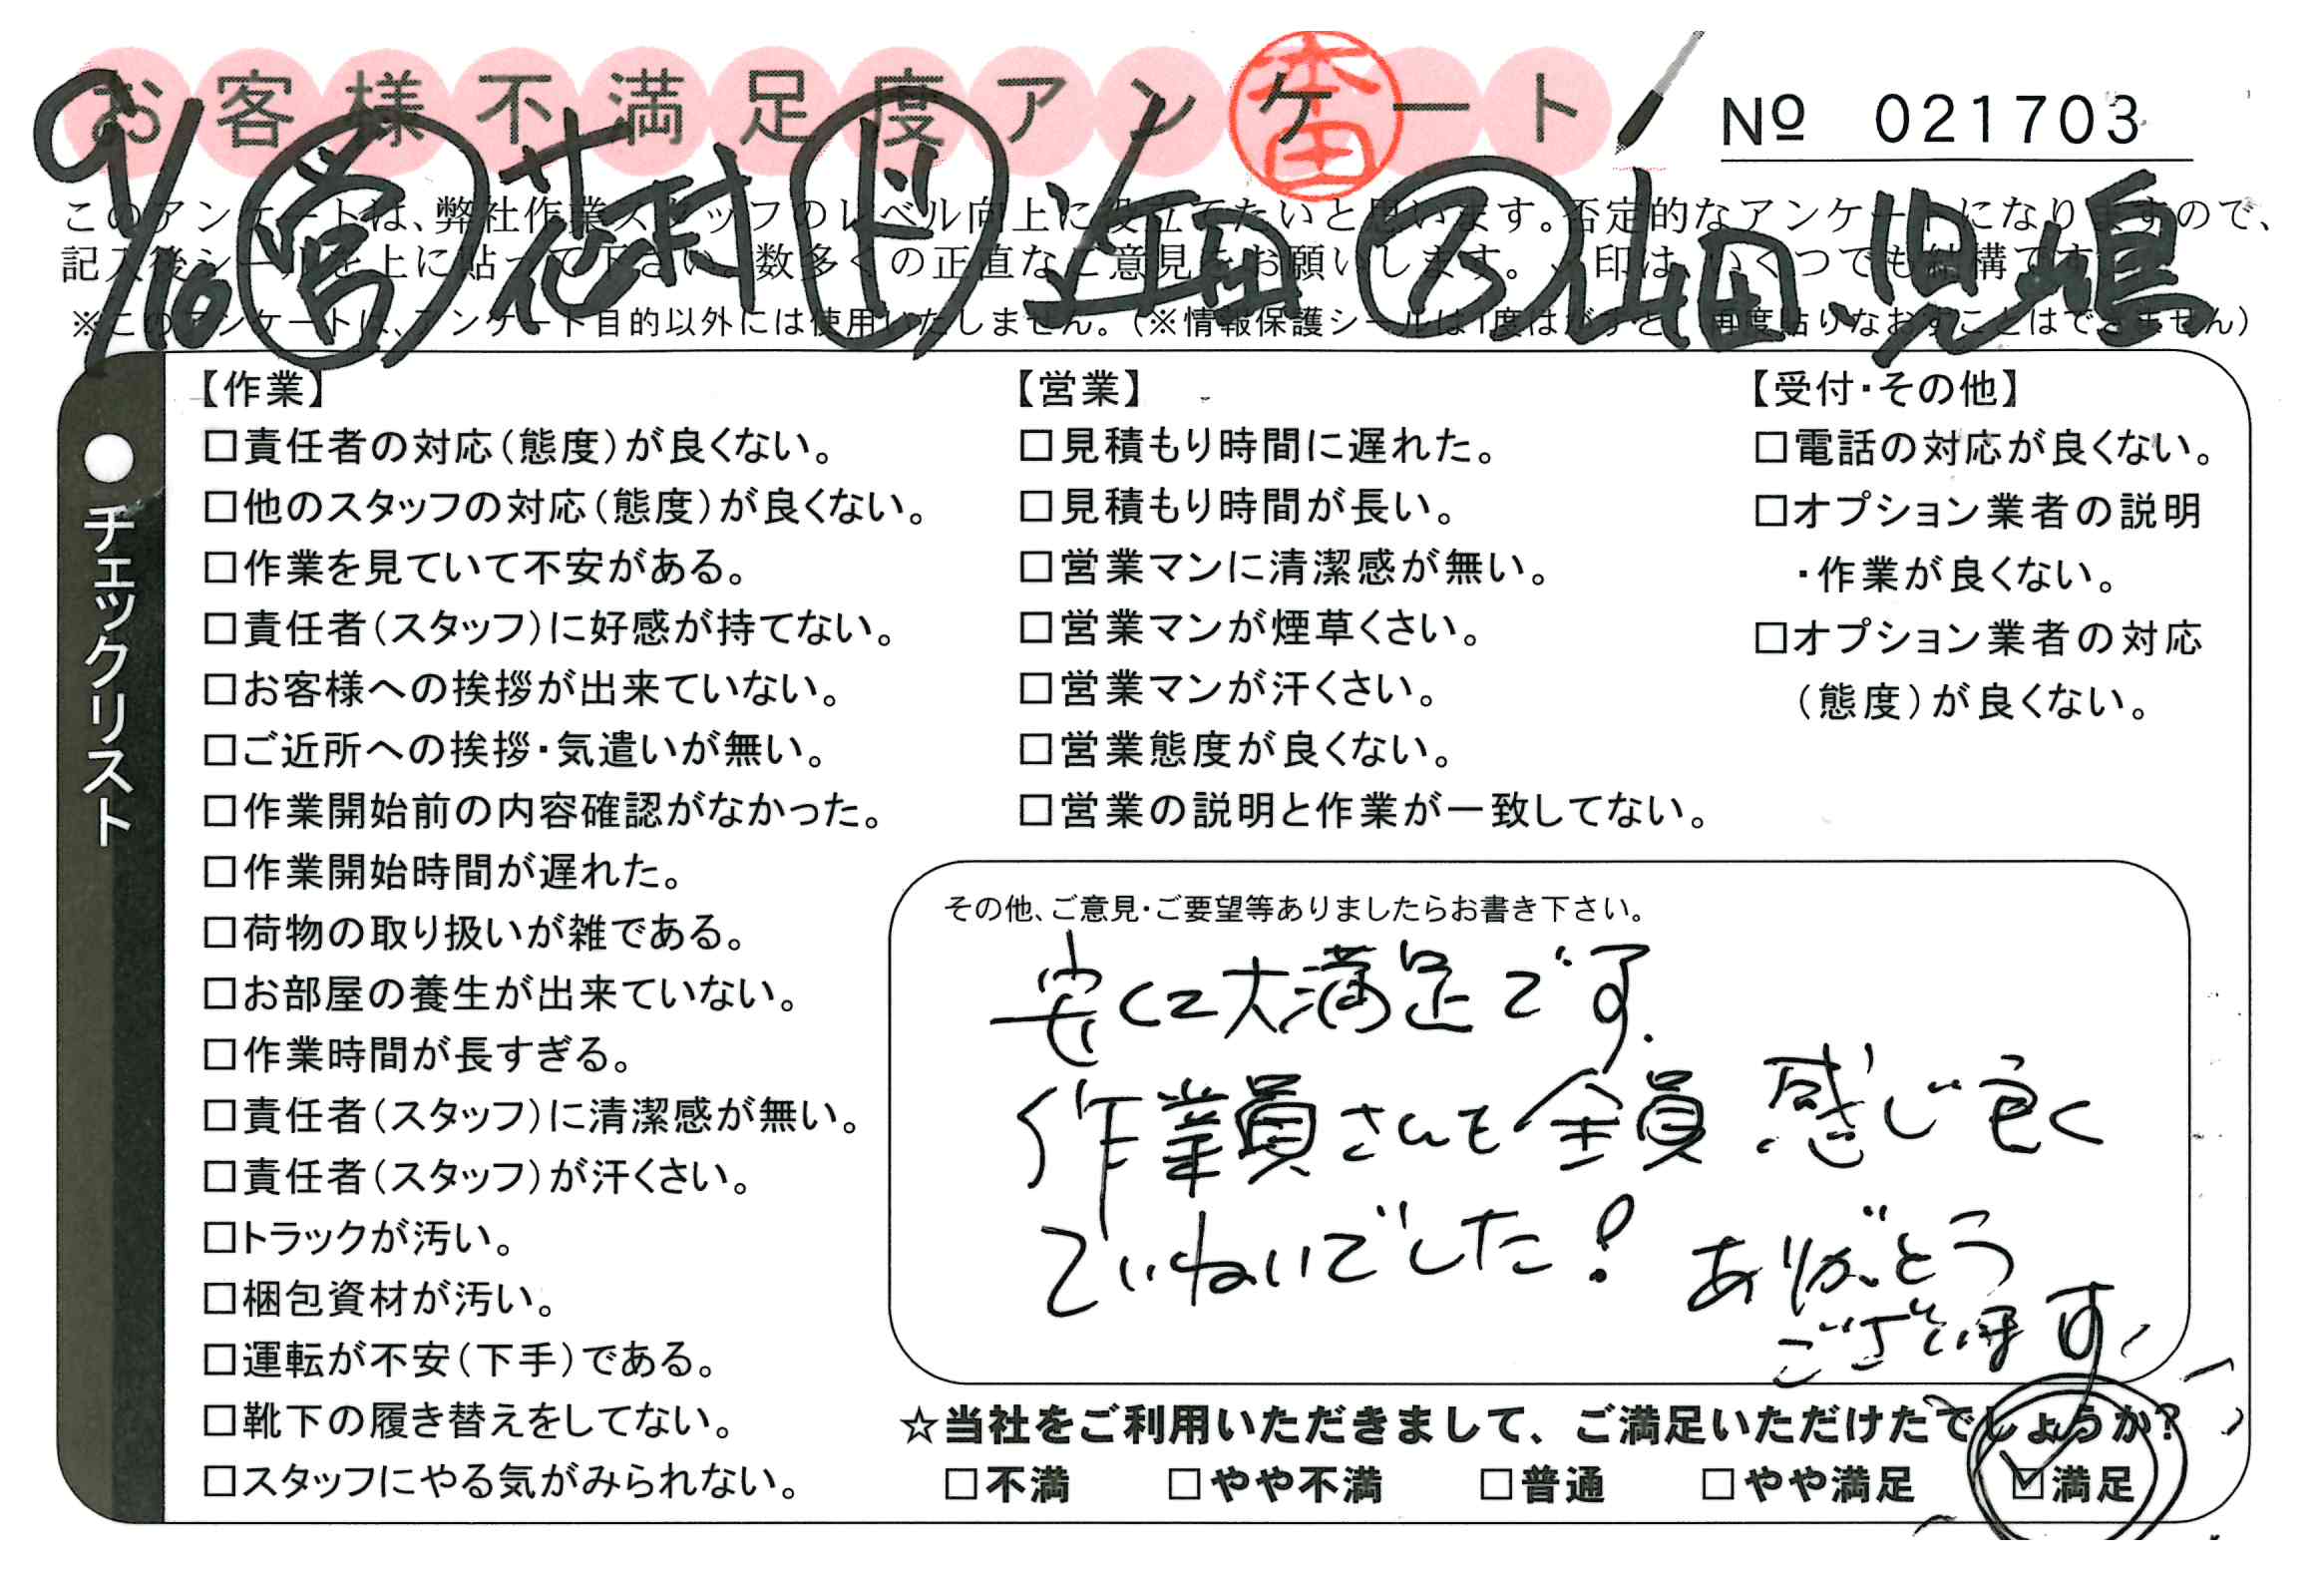 お客様不満足度アンケート
本田
№ 021703
9/10 営 花村 ド 近田 ス 山田、児嶋
このアンケートは、弊社作業スタッフのレベル向上に役立てたいと思います。否定的なアンケートになりますので、
記入後シールを上に貼って下さい。数多くの正直なご意見をお願いします。✓印は、いくつでも結構です。
※このアンケートは、アンケート目的以外には使用いたしません。(※情報保護シールは1度はがすと、再度貼りなおすことはできません)
●チェックリスト
【作業】
□責任者の対応(態度)が良くない。
□他のスタッフの対応(態度)が良くない。
□作業を見ていて不安がある。
□責任者(スタッフ)に好感が持てない。
□お客様への挨拶が出来ていない。
□ご近所への挨拶・気遣いが無い。
□作業開始前の内容確認がなかった。
□作業開始時間が遅れた。
□荷物の取り扱いが雑である。
□お部屋の養生が出来ていない。
□作業時間が長すぎる。
□責任者(スタッフ)に清潔感が無い。
□責任者(スタッフ)が汗くさい。
□トラックが汚い。
□梱包資材が汚い。
□運転が不安(下手)である。
□靴下の履き替えをしてない。
□スタッフにやる気がみられない。
【営業】
□見積もり時間に遅れた。
□見積もり時間が長い。
□営業マンに清潔感が無い。
□営業マンが煙草くさい。
□営業マンが汗くさい。
□営業態度が良くない。
□営業の説明と作業が一致してない。
【受付・その他】
□電話の対応が良くない。
□オプション業者の説明
・作業が良くない。
□オプション業者の対応
(態度)が良くない。
その他、ご意見・ご要望等ありましたらお書き下さい。
安くて大満足です.
作業員さんも全員 感じ良く
ていねいでした! ありがとう
ございます。
☆当社をご利用いただきまして、ご満足いただけたでしょうか?
□不満 □やや不満 □普通 □やや満足 ☑満足